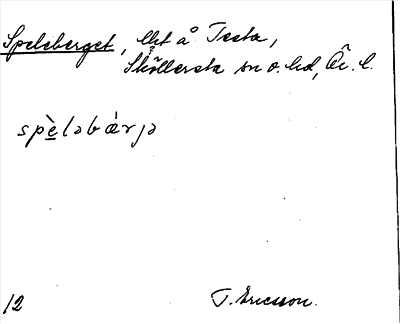 Spelsberget, llt å Tecta,
Sköllersta sn o. hd, Ör. l.
spè̱ləbǽrjə
12
T. Ericsson.